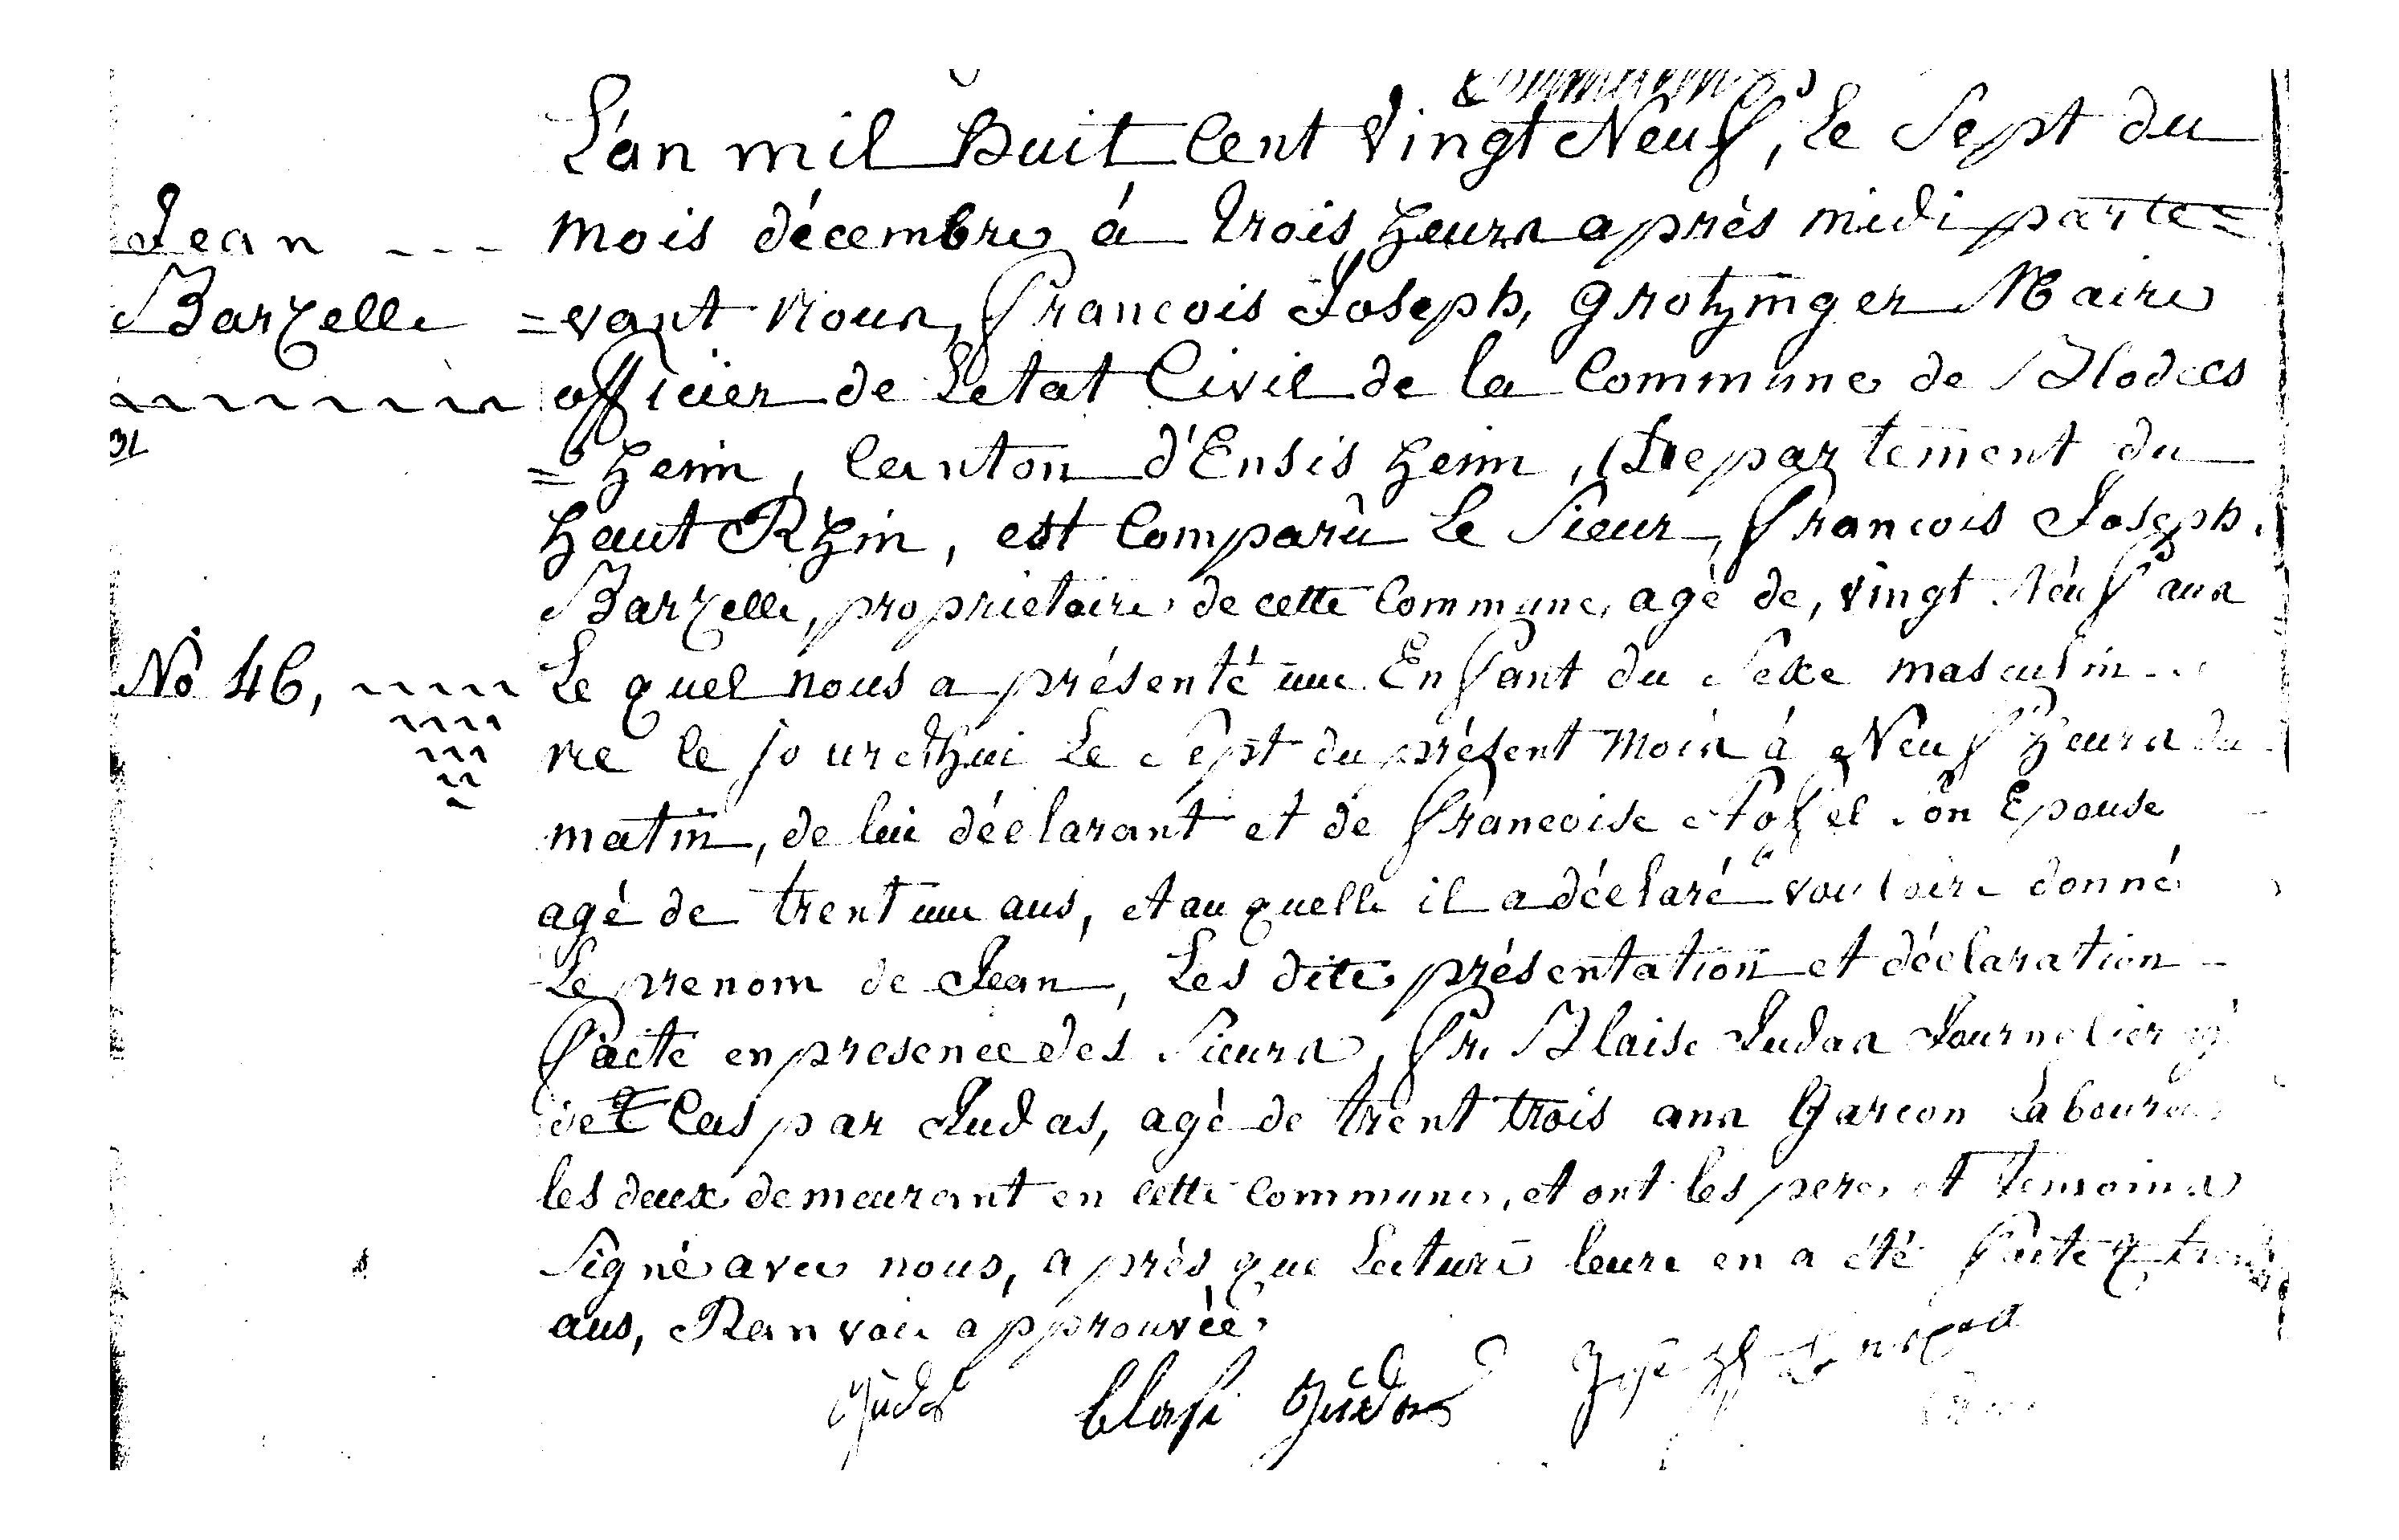 L'an mil Huit Cent Vingt Neuf, le Sept du
Jean --- mois décembre á trois heurs aprés midi parte=
Barzelle =vant nous, francois Joseph, Grotzinger Maire
officier de Letat Civil de la Commune de Blodels
=heim, Canton d'Ensisheim, Departement du
haut Rhin, est Comparû Le Sieur, francois Joseph.
Barzelle, proprietaire de cette Commune, agè de, vingt Neuf ans
No 46, Le quel nous a présenté une Enfant du Sexe masculin
ne le jourd'hui Le Sept du présent mois á Neuf heurs du
matin, de lui déclarant et de francoise Stoffel Son Epouse
agè de trent une ans, et au quelle il a déclaré vouloire donné
Le prenom de Jean, Les dite présentation et déclaration
faite en presence des Sieurs, Fr. Blaise Judas Journalier
de Caspar Judas, agè de trent trois ans Garcon Laboureur
les deux demeurant en cette Commune, et ont les pere et temoins
Signé avec nous, aprés que Lecture leure en a été faite
ans, Ranvoie approuvée.
Judas Blasi Judas